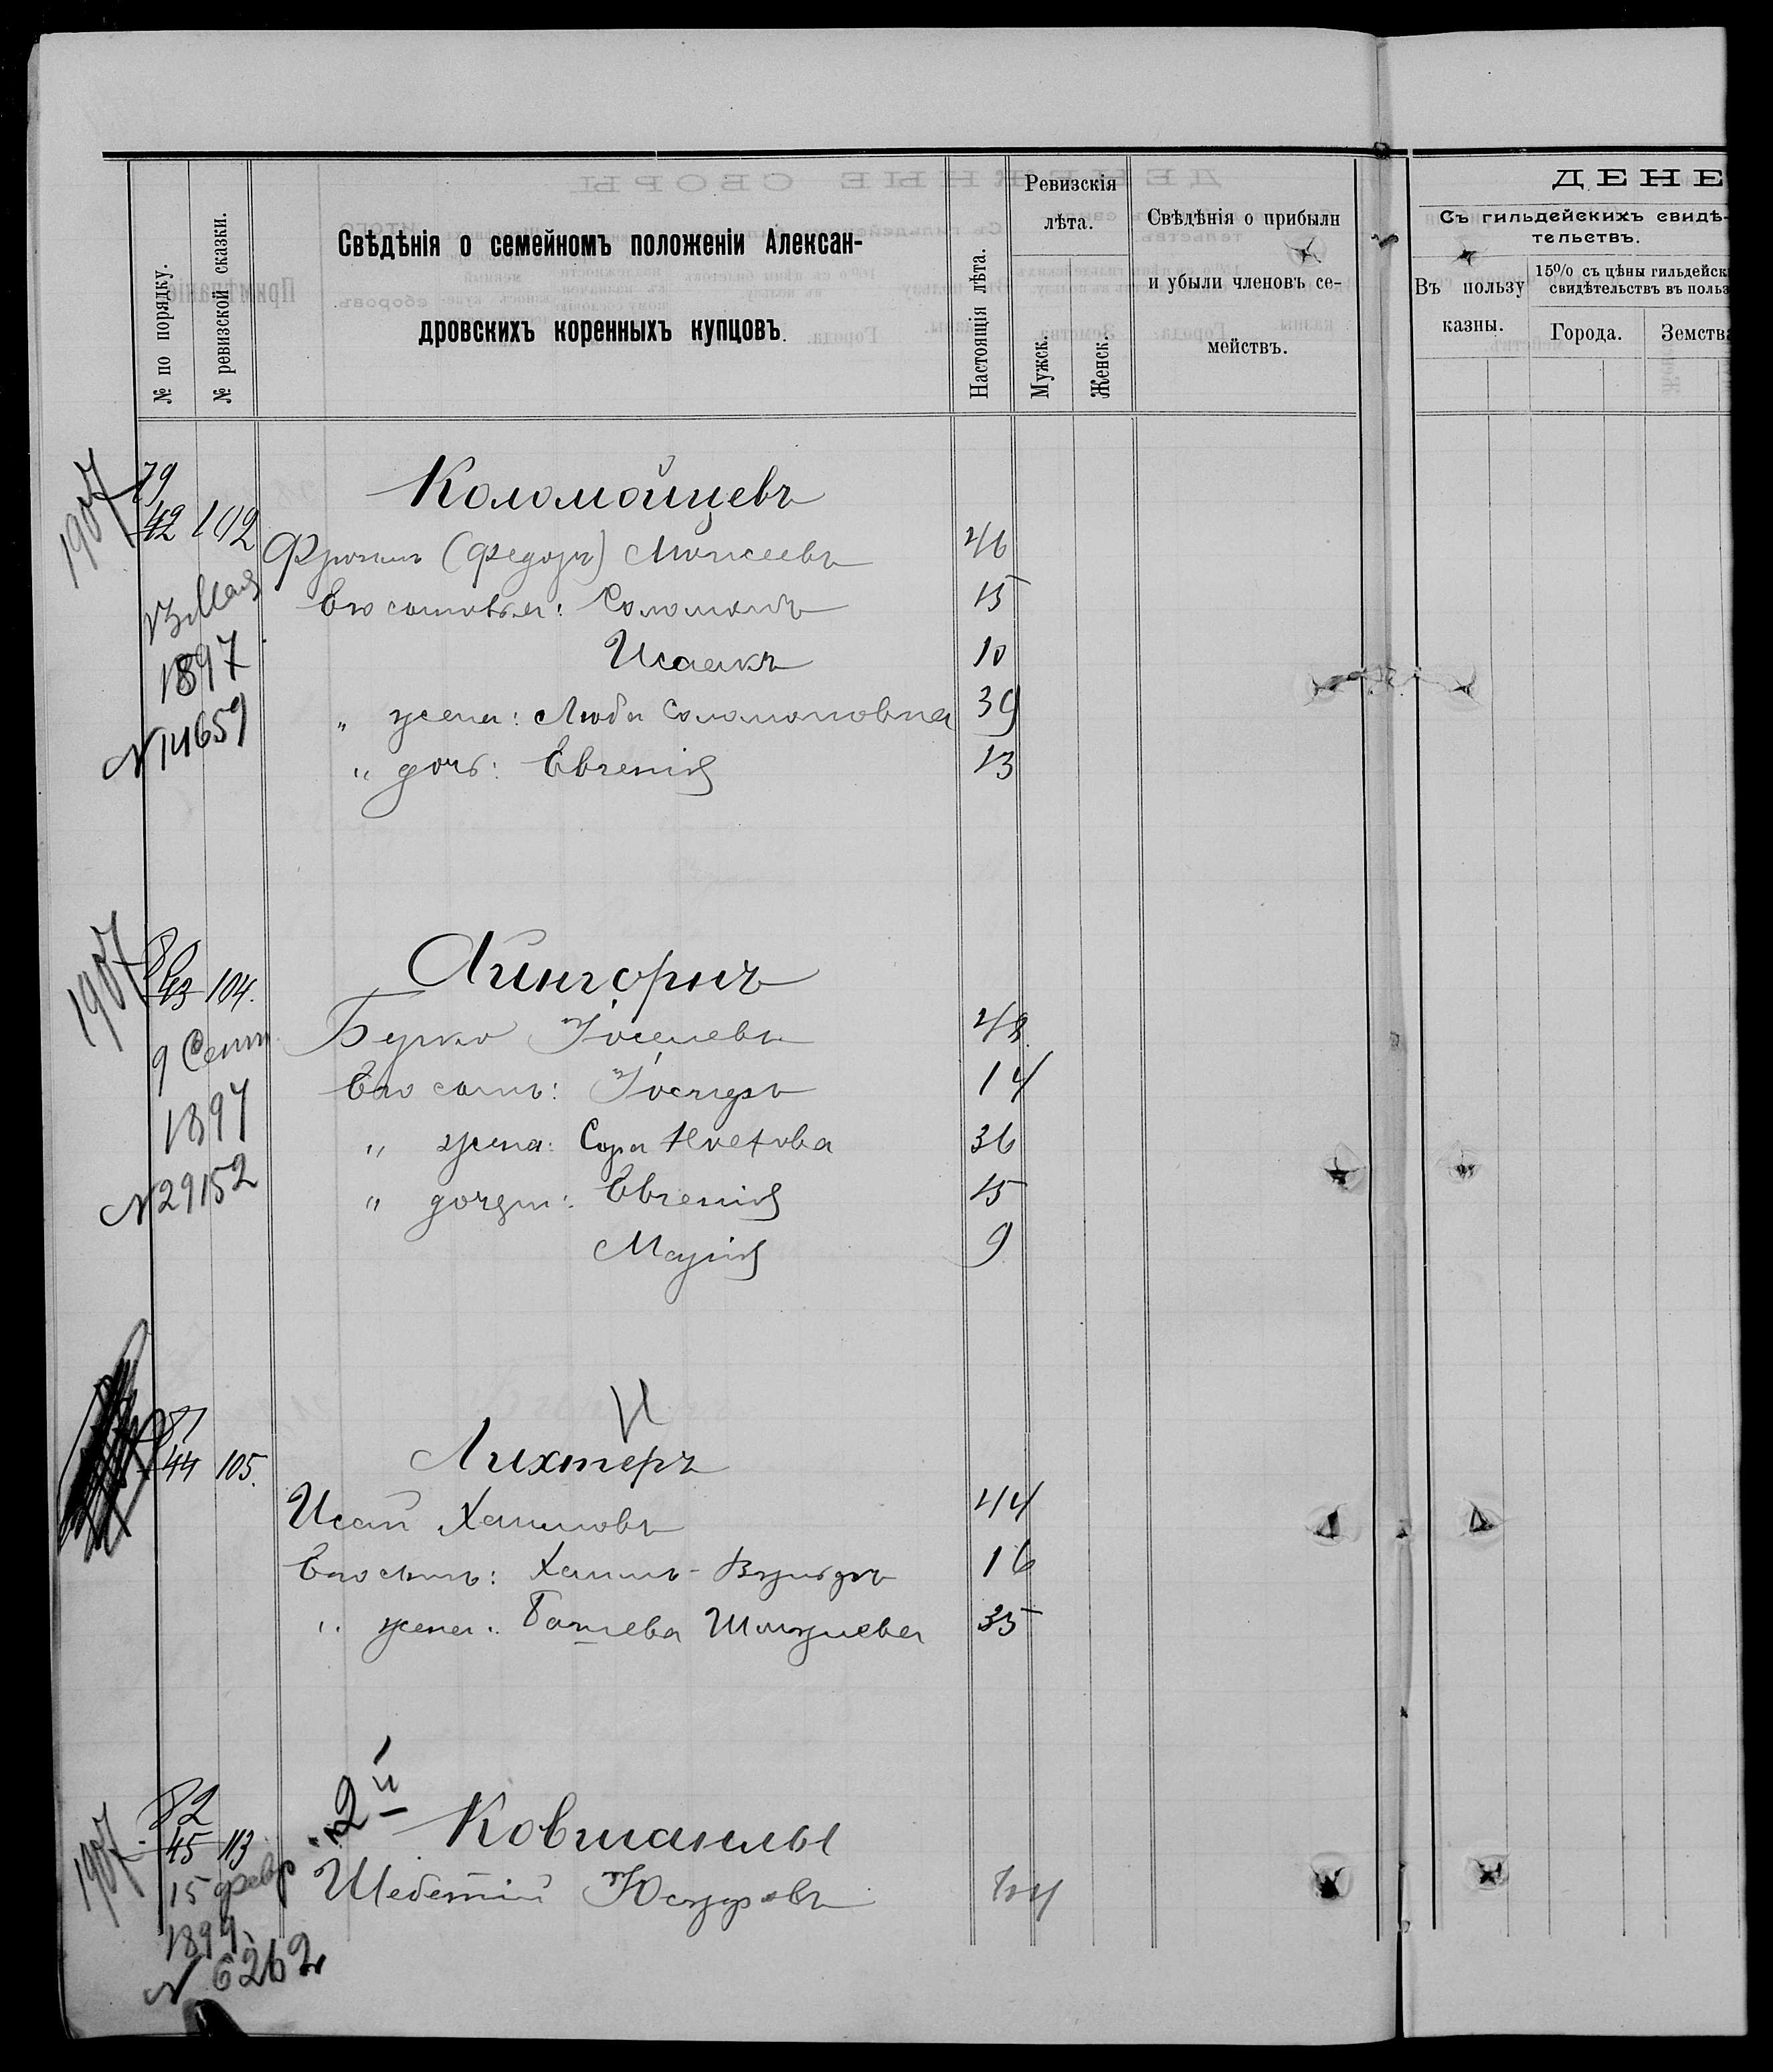 № по порядку.
№ ревизской сказки.
Свѣдѣнія о семейномъ положеніи Алексан-
дровскихъ коренныхъ купцовъ.
Настоящія лѣта.
Ревизскія
лѣта.
Мужск.
Женск.
Свѣдѣнія о прибыли
и убыли членовъ се-
мействъ.
ДЕНЕ
Съ гильдейскихъ свидѣ-
тельствъ.
Въ пользу
казны.
15% съ цѣны гильдейск
свидѣтельствъ въ польз
Города.
Земства
1907
79
42 102
Коломойцевъ
Фроимъ (Федоръ) Моисеевъ 46
13 Мая
1897
N 14659
Его сыновья: Соломонъ 15
Исаакъ 10
" жена: Люба Соломоновна 39
" дочь: Евгенія 13
1907
80
43 104.
Лингорнъ
Берко Іоселевъ 48
9 Сент
1897
N 29152
Его сынъ: Іосифъ 14
" жена: Сора 36
" дочери: Евгенія 15
Марія 9
81
44 105.
Лихтеръ
Исай Хаимовъ 44
Его сынъ: Хаимъ-Вульфъ 16
" жена: Башева Шмулева 35
1907
82
45 113
2й
Ковшанлы
Шебетій Юсуфовъ
15 февр
1899
N 6262